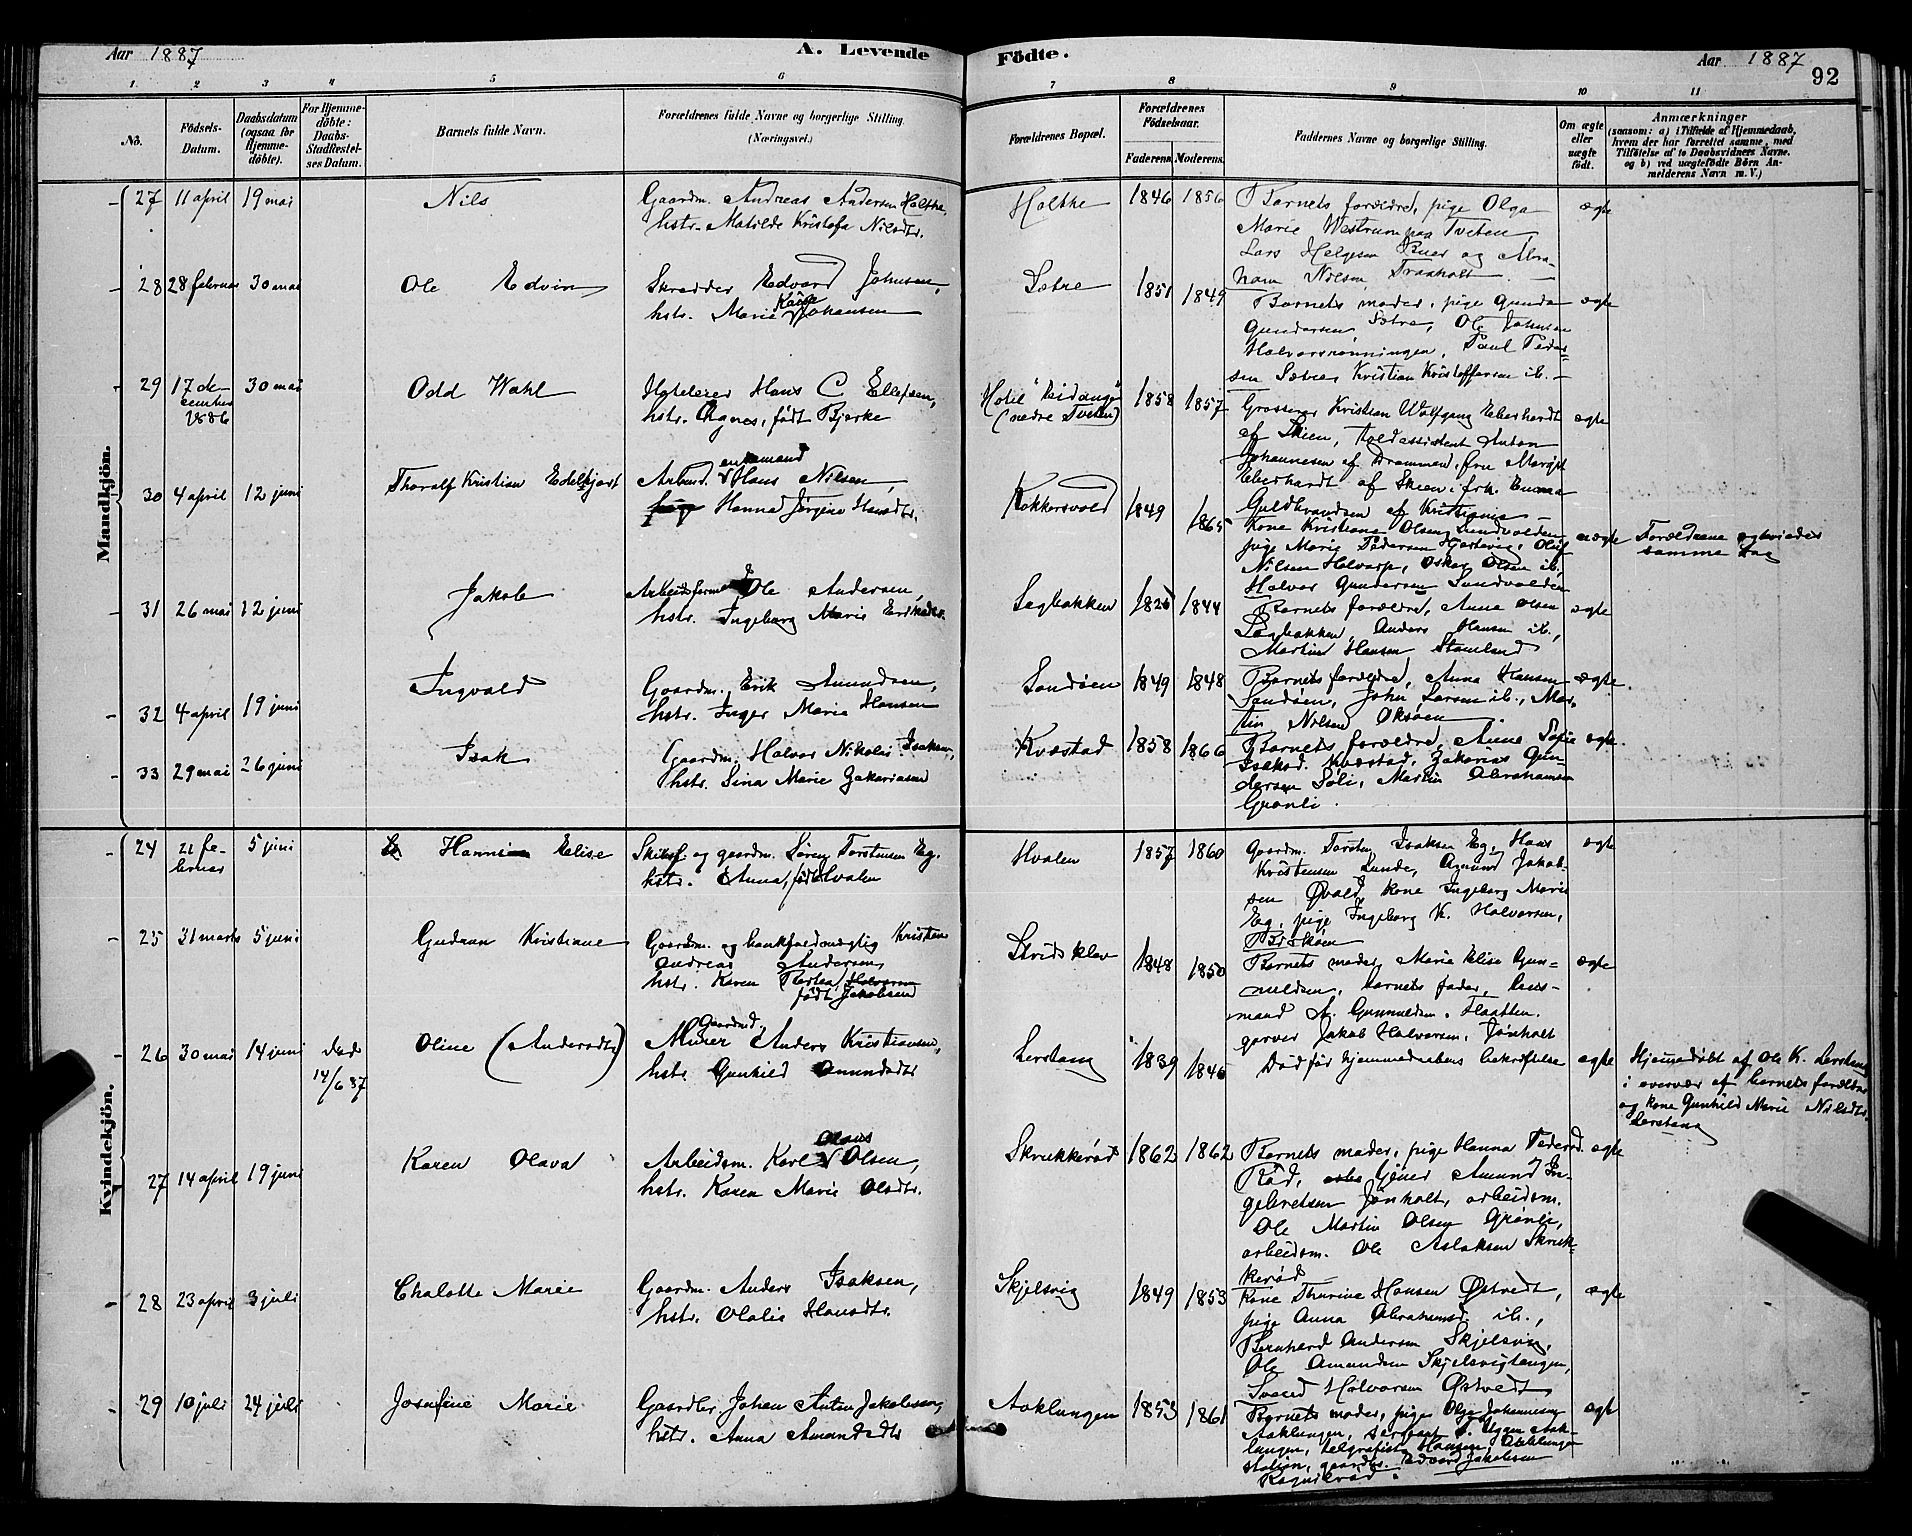 Aar 1887
A. Levende Födte.
Aar 1887
92
1. 2 3 4 5 6 7 8 9 10 11
Nö.
Födsels-Datum.
Daabsdatum (ogsaa for Hjemme-döbte).
For Hjemme-döbte: Daabs-Stadfæstel-ses Datum.
Barnets fulde Navn.
Forældrenes fulde Navne og borgerlige Stilling. (Næringsvei.)
Forældrenes Bopæl.
Forældrenes Födselsaar.
Faderens. Moderens.
Faddernes Navne og borgerlige Stilling.
Om ægte eller uægte födt.
Anmærkninger
(saasom: a) i Tilfælde af Hjemmedaab, hvem der har forrettet samme, med Tilföielse af to Daabsvidners Navne. og b) ved uægtefödte Börn An-melderens Navn m. V.)
Mandkjön.
27 11 april 19 mai Nils
Gaardm. Andreas Andersen Holthe,
hstr. Matilde Kristofa Nilsdtr.
Holthe 1846 1856
Barnets forældre, pige Olga
Marie Westrum paa Tveten
Lars Helgesen Buer og Abra-
ham Nilsen Traaholt.
ægte
28 28 februar 30 mai Ole Edvin
Skrædder Edvard Johnsen,
hstr. Marie Kaise Johansen
Sætre 1851 1849
Barnets moder, pige Gunda
Gundersen Sætre, Ole Johnsen
Halvorsrönningen, Paul Peder-
sen Sætre, Kristian Kristoffersen ib.
ægte
29 17 december 1886 30 mai Odd Wahl
Hoteleier Hans C Ellefsen,
hstr. Agnes, født Bjerke
Hotel "Eidanger" (nedre Tveten) 1858 1857
Grosserer Kristian Wolfgang Eberhardt
af Skien, toldassistent Anton
Johannesen af Drammen, fru Margit
Eberhardt af Skien, frk. Emma
Guldbrandsen af Kristiania
ægte
30 4 april 12 juni Thoralf Kristian Edelhjort
Arbeid. enkemand Hans Nilsen,
pige Hanna Jørgine Hansdtr.
Kokkersvold 1849 1865
Kone Kristiane Olsen Sundvolden
pige Marie Pedersen Hjertvig, Oluf
Nilsen Helvarp, Oskar Olsen ib,
Halvor Gundersen Sundvolden
uægte
Forældrene egteviedes
samme dag
31 26 mai 12 juni Jakob
Arbeidsform. Ole Andersen,
hstr. Ingeborg Marie Eriksdtr.
Sagbakken 1825 1844
Barnets forældre, Anne Olsen
Sagbakken, Anders Hansen ib.,
Martin Hansen Stamland
ægte
32 4 april 19 juni Ingvald
Gaardm. Erik Amundsen,
hstr. Inger Marie Hansen
Sandöen 1849 1848
Barnets forældre, Anna Hansen
Sandöen, John Larsen ib., Mar-
tin Nilsen Oksöen
ægte
33 29 mai 26 juni Isak
Gaardm. Halvor Nikolai Isaksen,
hstr. Sina Marie Zakariasen
Kvæstad 1858 1866
Barnets forældre, Anne Sofie
Isaksd. Kvæstad, Zakarias Gun-
dersen Soli, Martin Abrahamsen
Grönli.
ægte
Kvindekjön.
24 21 februar 5 juni Hanna Elise
og gaardm. Sören Torstensen Eg,
hstr. Anna, født Hvalen
Hvalen 1857 1860
Gaardm. Torsten Isaksen Eg, Hans
Kristensen Lunde, Amund Jakob-
sen Øvald, kone Ingeborg Marie
Eg, pige Ingeborg K. Halvorsen,
Björkøen
ægte
25 31 marts 5 juni Gudrun Kristiane
Gaardm. og bankfuldmægtig Kristian
Andreas Andersen,
hstr. Karen Bertea Halvorsen
født Jakobsen
Skridsklev 1848 1850
Barnets moder, Marie Elise Gun-
nuldsen, barnets fader, hus-
mand A. Gunnuldsen, Flaatten.
garver Jakob Halvorsen, Jönholt
ægte
26 30 mai 14 juni død 14/6 87 Oline (Andersdtr)
Gaardmd. Murer Anders Kristiansen,
hstr. Gunhild Amundsdtr
Lerstang 1839 1845
Død før hjemmedaabens bekræftelse
ægte
Hjemmedøbt af Ole K. Lerstang
i overvær af barnets forældre
og kone Gunhild Marie Nilsdtr.
Lerstang
27 14 april 19 juni Karen Olava
Arbeidsm. Karl Olaus Olsen,
hstr. Karen Marie Olsdtr.
Skrukkeröd 1862 1862
Barnets moder, pige Hanna Pedersd.
Röd, tjener Amund In-
gebretsen Jönholt, arbeidsm.
Ole Martin Olsen Grönli,
arbeidsm. Ole Aslaksen Skruk-
keröd
ægte
28 23 april 3 juli Chalotte Marie
Gaardm. Anders Isaksen,
hstr. Olalie Hansdtr.
Skjelsvig 1849 1853
Kone Thurine Hansen Østvedt,
pige Anna Abrahamsd. ib.,
Bernhard Andersen Skjelsvig,
Ole Amundsen Skjelsvigtangen,
Svend Halvorsen Østvedt
ægte
29 10 juli 24 juli Josefine Marie
Gaardbr. Johan Anton Jakobsen,
hstr. Anna Amundsdtr
Aaklungen 1853 1861
Barnets moder, pige Olga Johannesen
Aaklungen, sergeant O. Uggen Aak-
lungen, telegrafist Hansen Aaklungen
station, gaardbr. Edvard Jakobsen
Ragnilröd.
ægte